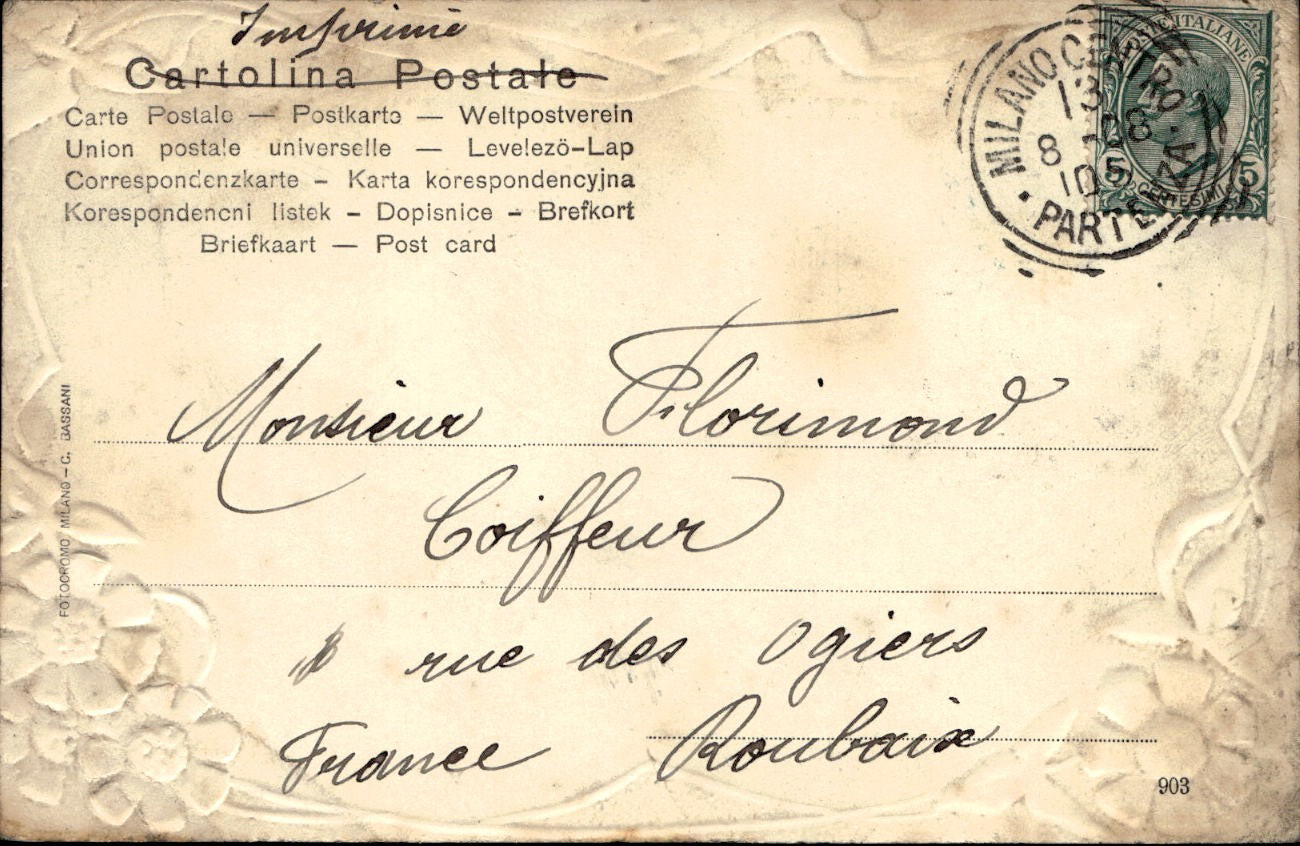 Imprimé
Cartolina Postale
Carte Postale — Postkarte — Weltpostverein
Union postale universelle — Levelezö-Lap
Correspondenzkarte – Karta korespondencyjna
Korespondencni listek – Dopisnice – Brefkort
Briefkaart — Post card
POSTE ITALIANE
MILANO CENTRO
13
8 - 08
10
• PARTENZA •
5 CENTESIMI 5
Monsieur Florimond
Coiffeur
rue des Ogiers
France Roubaix
FOTOCROMO MILANO – C. BASSANI
903